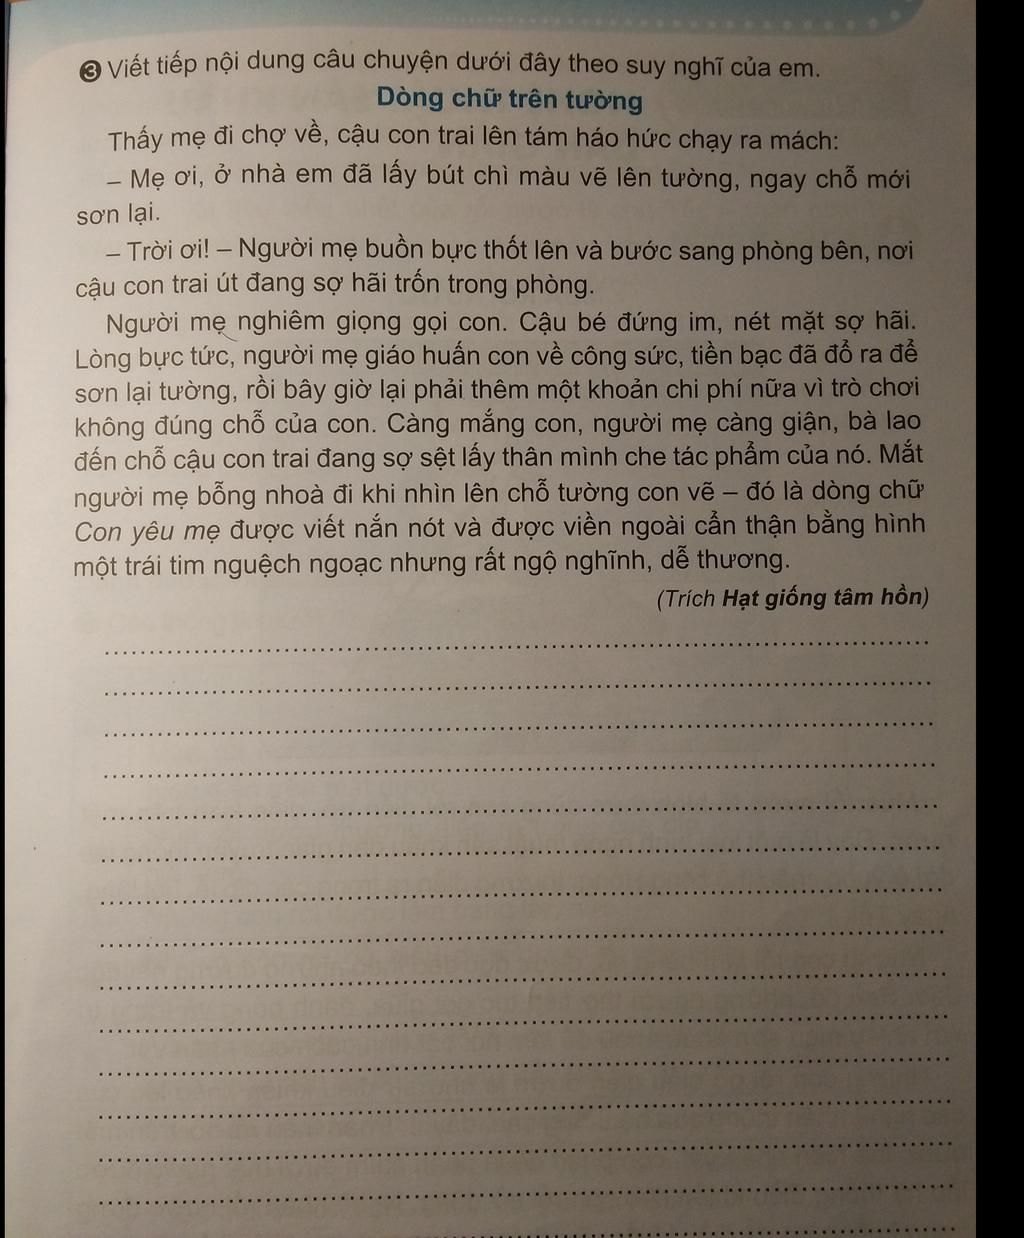 ❸ Viết tiếp nội dung câu chuyện dưới đây theo suy nghĩ của em.
Dòng chữ trên tường
Thấy mẹ đi chợ về, cậu con trai lên tám háo hức chạy ra mách:
– Mẹ ơi, ở nhà em đã lấy bút chì màu vẽ lên tường, ngay chỗ mới
sơn lại.
– Trời ơi! – Người mẹ buồn bực thốt lên và bước sang phòng bên, nơi
cậu con trai út đang sợ hãi trốn trong phòng.
Người mẹ nghiêm giọng gọi con. Cậu bé đứng im, nét mặt sợ hãi.
Lòng bực tức, người mẹ giáo huấn con về công sức, tiền bạc đã đổ ra để
sơn lại tường, rồi bây giờ lại phải thêm một khoản chi phí nữa vì trò chơi
không đúng chỗ của con. Càng mắng con, người mẹ càng giận, bà lao
đến chỗ cậu con trai đang sợ sệt lấy thân mình che tác phẩm của nó. Mắt
người mẹ bỗng nhoà đi khi nhìn lên chỗ tường con vẽ – đó là dòng chữ
Con yêu mẹ được viết nắn nót và được viền ngoài cẩn thận bằng hình
một trái tim nguệch ngoạc nhưng rất ngộ nghĩnh, dễ thương.
(Trích Hạt giống tâm hồn)